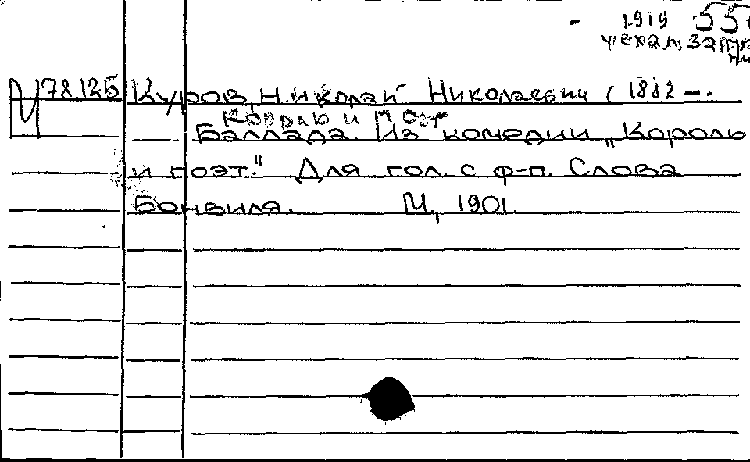 - 1919 55
уехал за гра
М 78.125 Куров, Николай Николаевич (1882 -.
Король и поэт
Баллада. Из комедии „Король
и поэт." Для гол. с ф-п. Слова
Бонвиля. М, 1901.